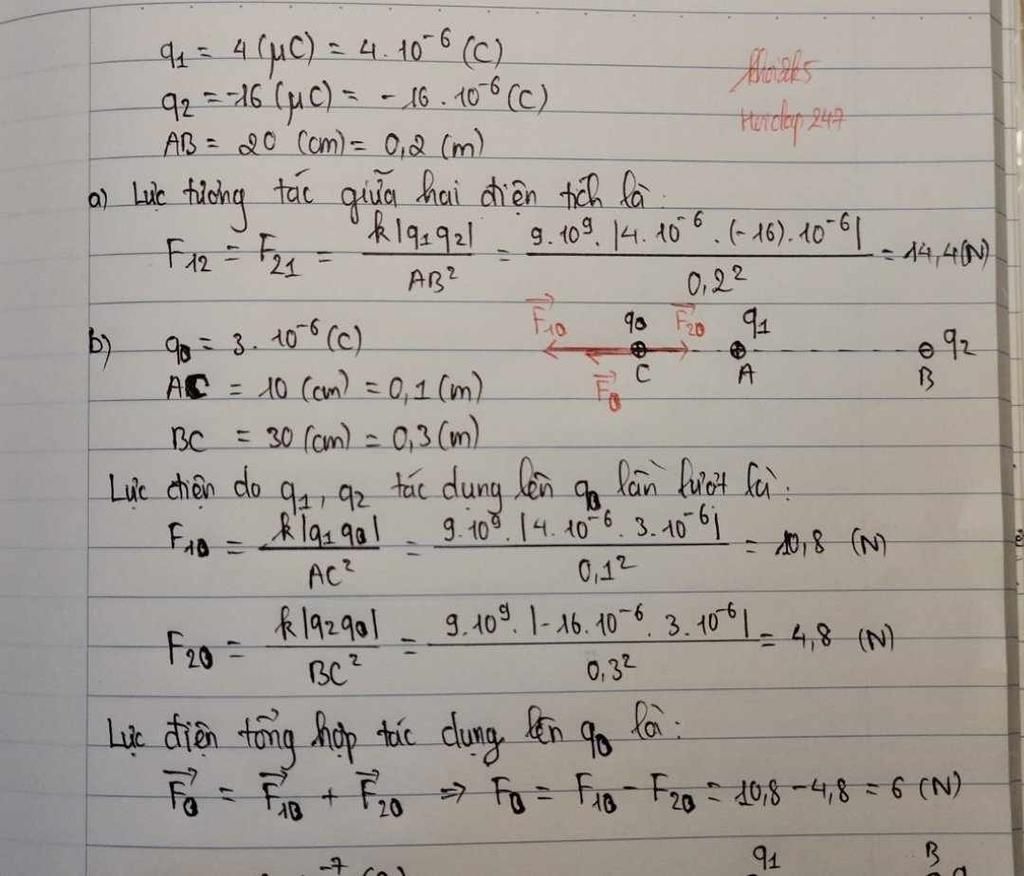 q₁ = 4 (μC) = 4.10⁻⁶ (C)
q₂ = -16 (μC) = -16.10⁻⁶ (C)
AB = 20 (cm) = 0,2 (m)
Hoidap 247
a) Lực tương tác giữa hai điện tích là:
F₁₂ = F₂₁ = k|q₁q₂| / AB² = 9.10⁹.|4.10⁻⁶.(-16).10⁻⁶| / 0,2² = 14,4 (N)
F⃗₁₀ q₀ F⃗₂₀ q₁ q₂
C A B
F⃗₀
b) q₀ = 3.10⁻⁶ (C)
AC = 10 (cm) = 0,1 (m)
BC = 30 (cm) = 0,3 (m)
Lực điện do q₁, q₂ tác dụng lên q₀ lần lượt là:
F₁₀ = k|q₁q₀| / AC² = 9.10⁹.|4.10⁻⁶.3.10⁻⁶| / 0,1² = 10,8 (N)
F₂₀ = k|q₂q₀| / BC² = 9.10⁹.|-16.10⁻⁶.3.10⁻⁶| / 0,3² = 4,8 (N)
Lực điện tổng hợp tác dụng lên q₀ là:
F⃗₀ = F⃗₁₀ + F⃗₂₀ => F₀ = F₁₀ - F₂₀ = 10,8 - 4,8 = 6 (N)
q₁ B